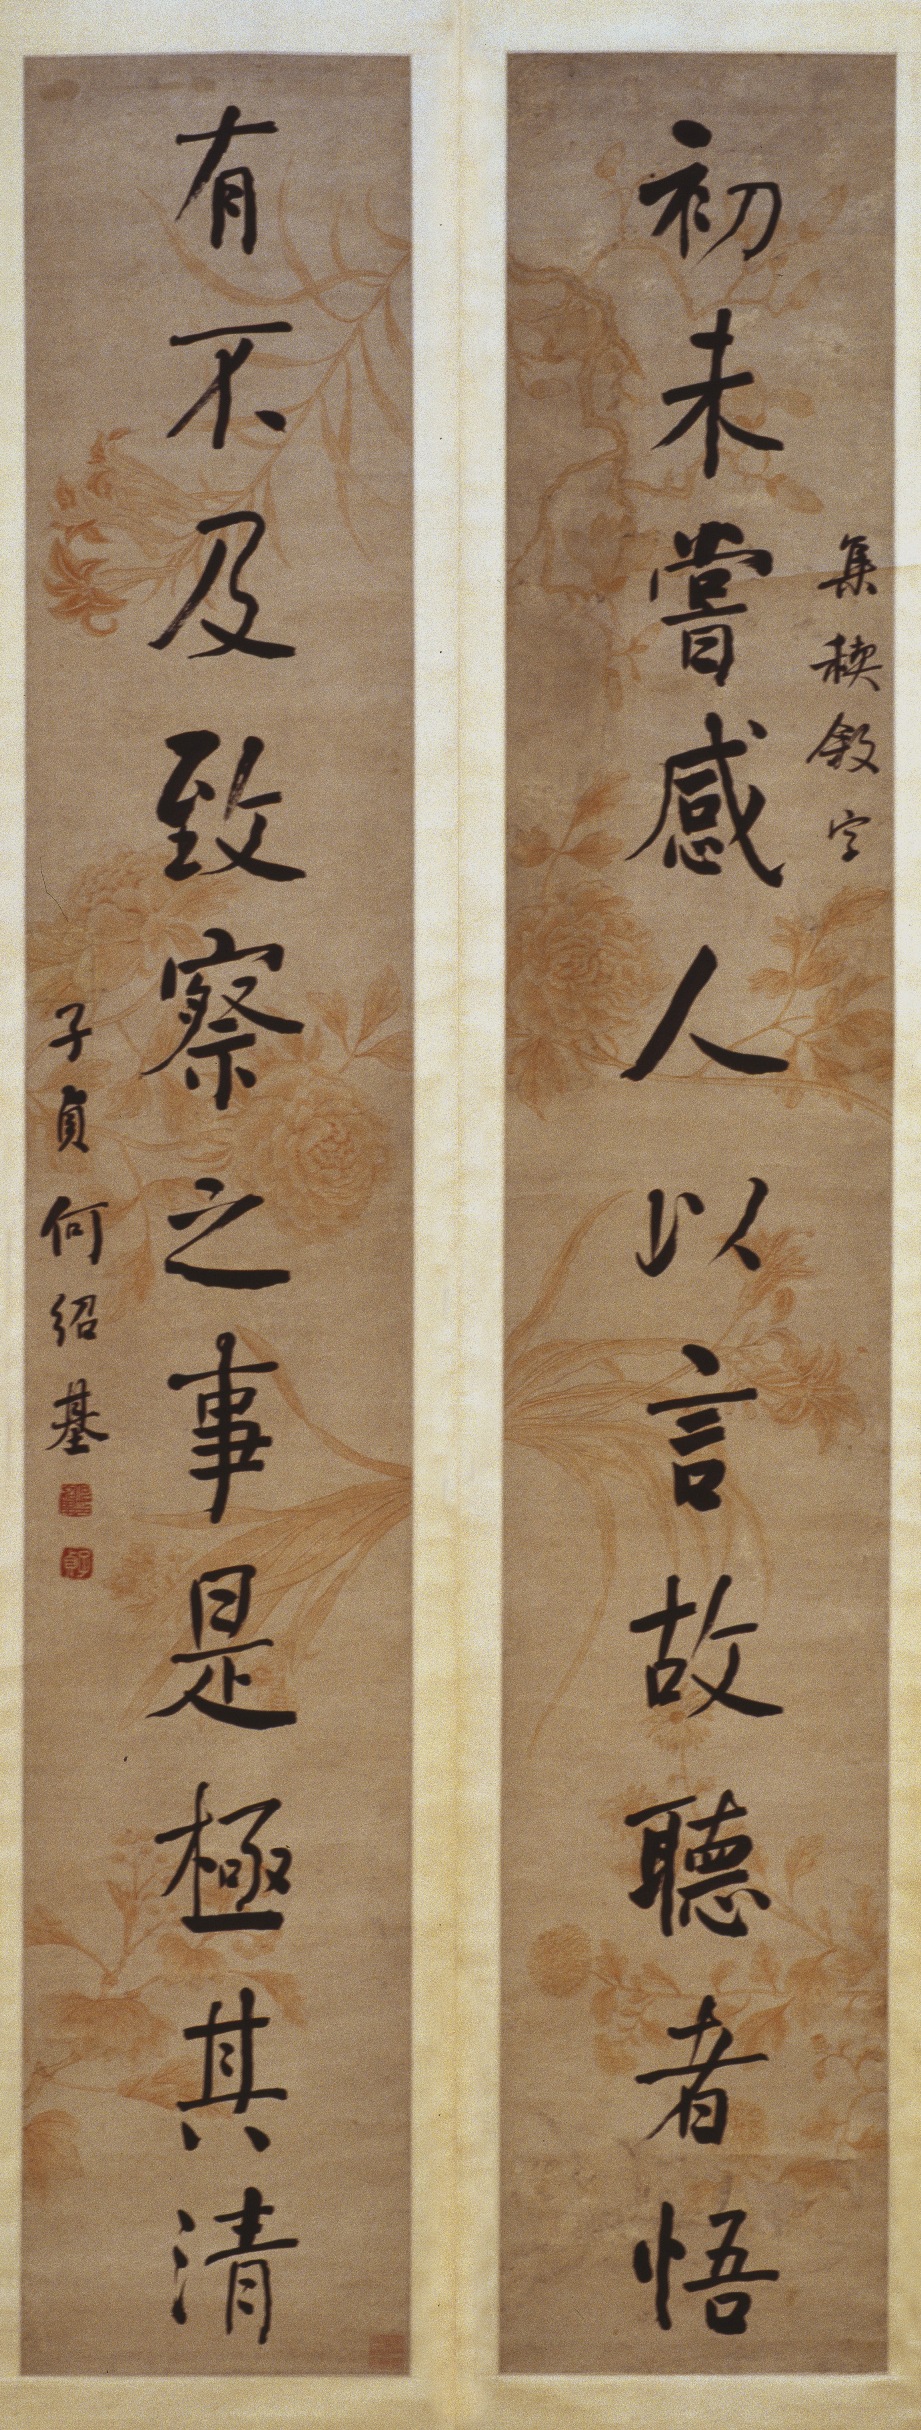 初未嘗感人以言故聽者悟
集稧敘字
有不及致察之事是極其清
子貞何紹基